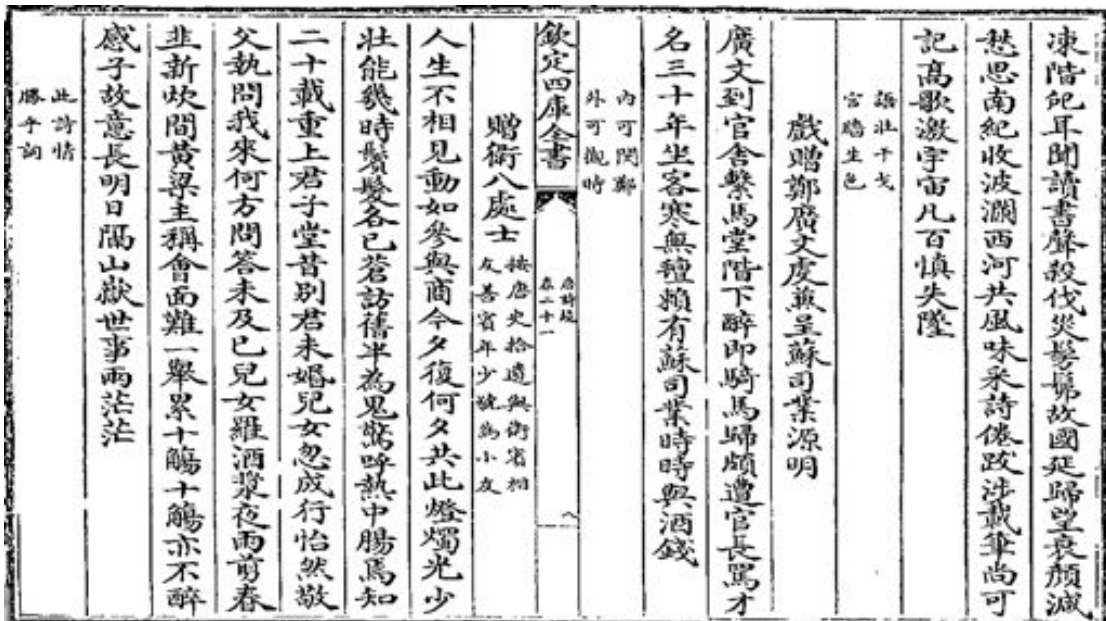 凍階㶊耳聞讀書聲殺伐災髣髴故國延歸望衰顏減
愁思南紀收波瀾西河共風味采詩倦跋涉載筆尚可
記高歌激宇宙凡百慎失墜
語壯干戈
宮牆生色
戲贈鄭廣文虔兼呈蘇司業源明
廣文到官舍繫馬堂階下醉即騎馬歸頗遭官長罵才
名三十年坐客寒無氊賴有蘇司業時時與酒錢
內可閔鄭
外可觀時
欽定四庫全書
唐詩鏡
卷二十一
八
贈衛八處士
按唐史拾遺與衛賓相
友善賓年少號為小友
人生不相見動如參與商今夕復何夕共此燈燭光少
壯能幾時鬢髮各已蒼訪舊半為鬼驚呼熱中腸焉知
二十載重上君子堂昔別君未婚兒女忽成行怡然敬
父執問我來何方問答未及已兒女羅酒漿夜雨剪春
韭新炊間黃粱主稱會面難一舉累十觴十觴亦不醉
感子故意長明日隔山嶽世事兩茫茫
此詩情
勝乎詞